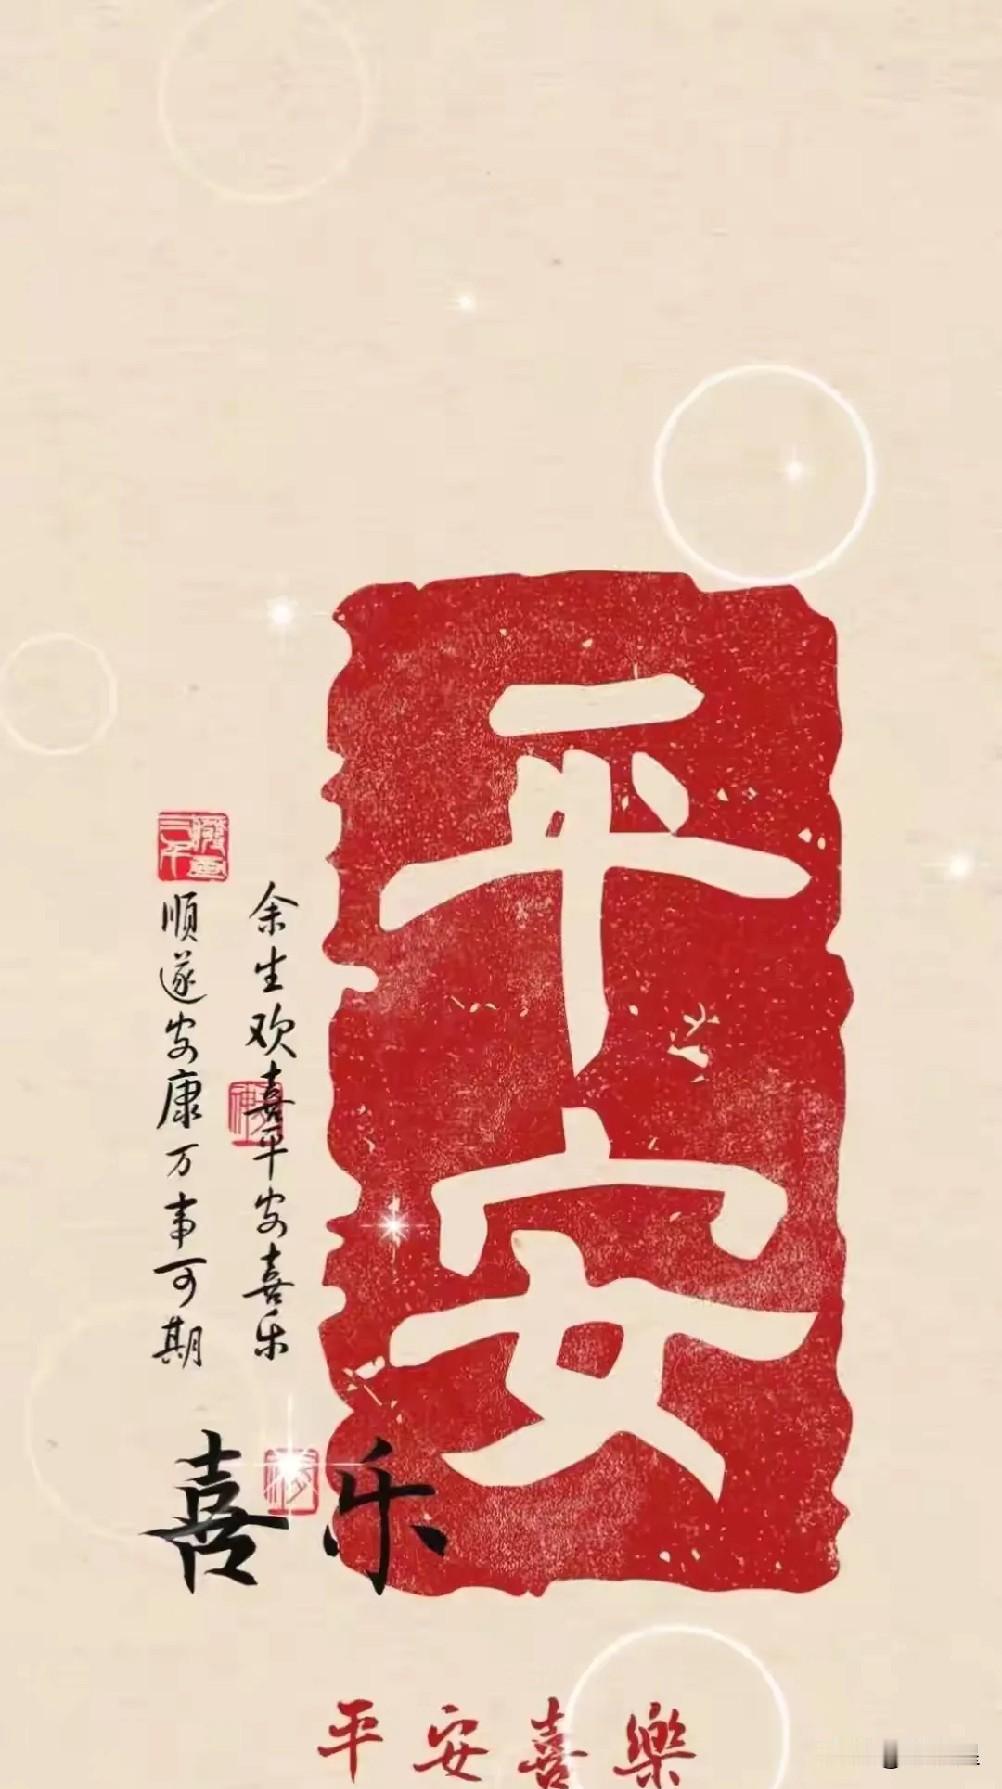 平安
余生欢喜平安喜乐
顺遂安康万事可期
喜乐
平安喜樂